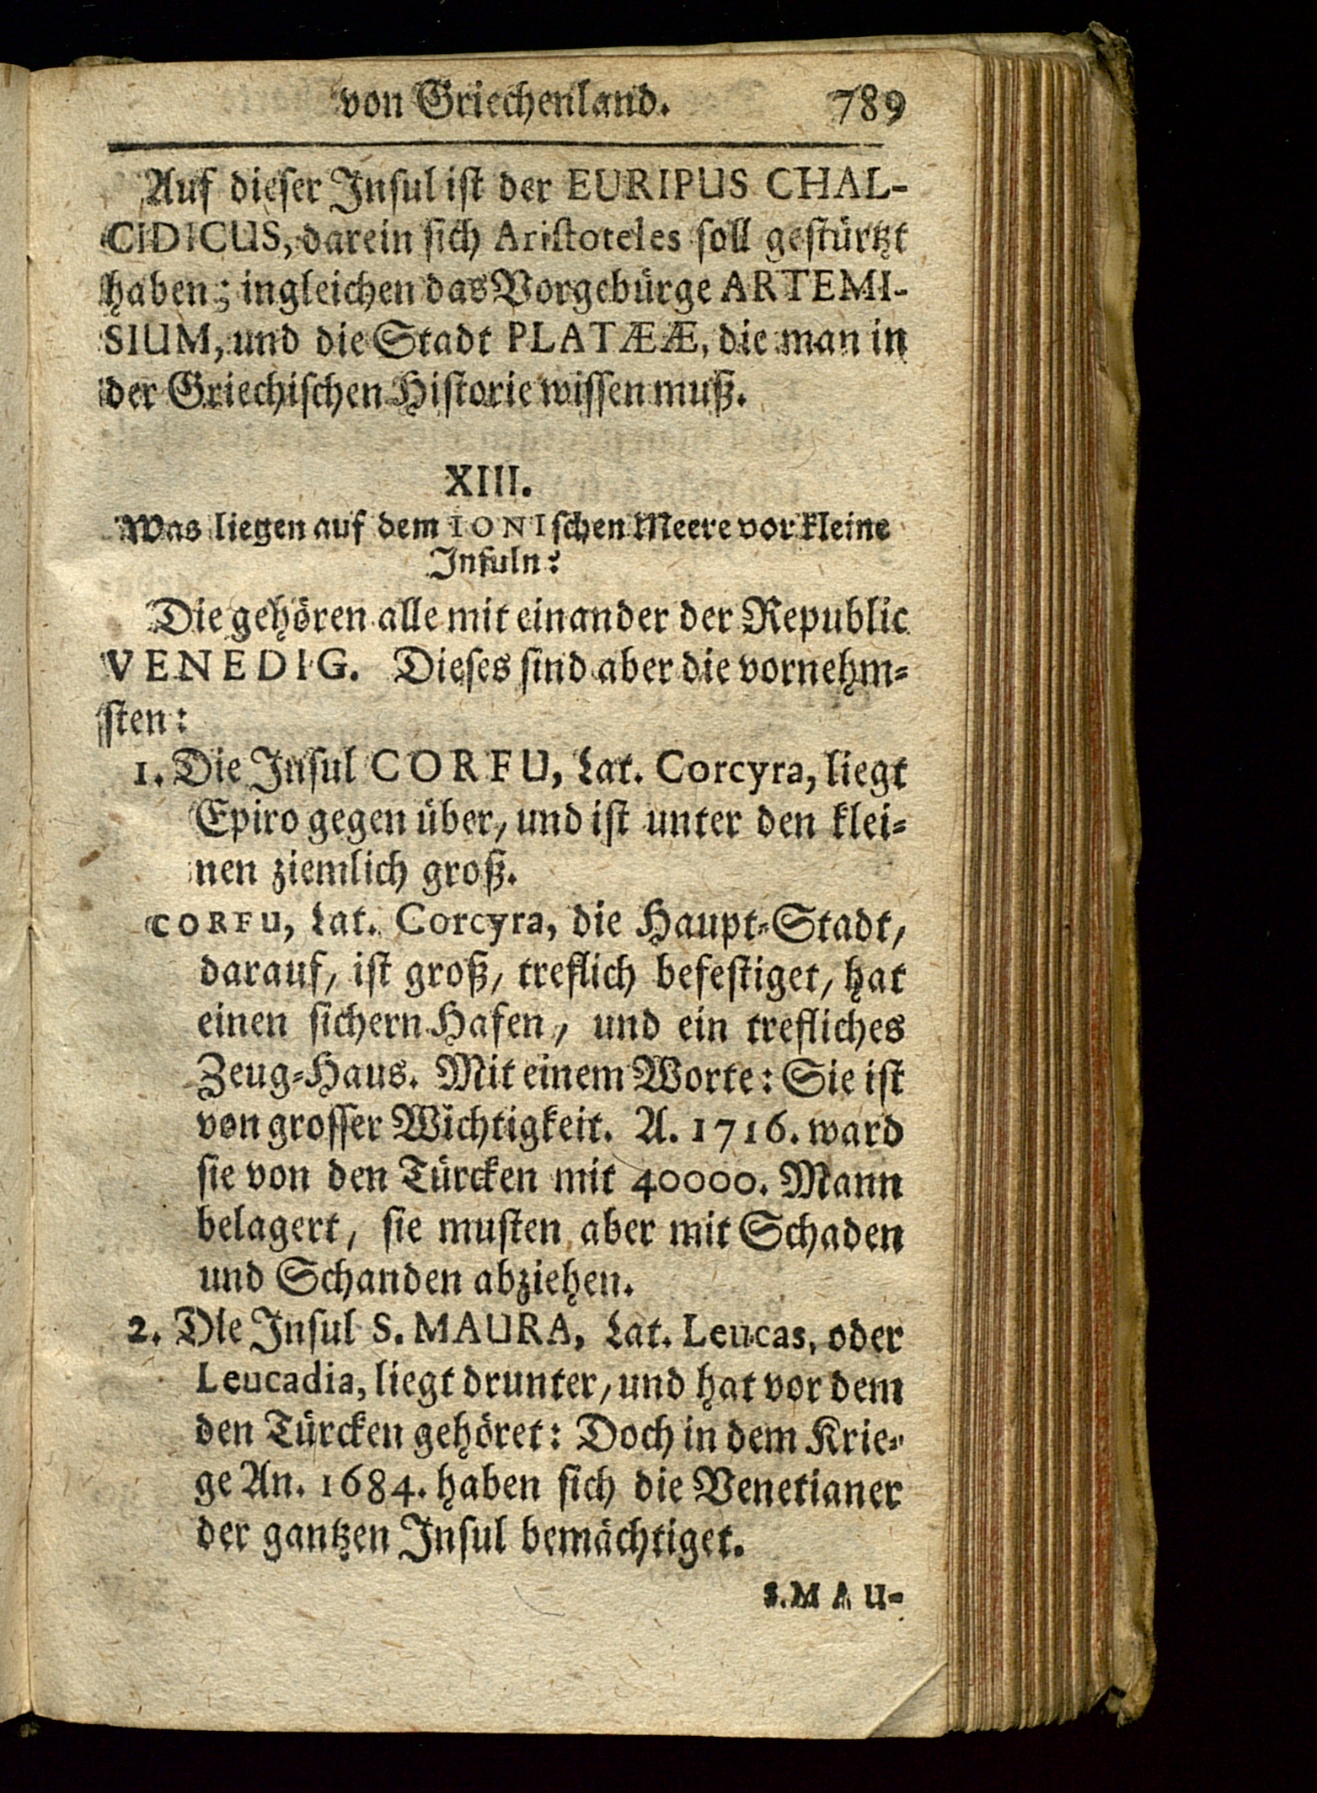 von Griechenland. 789
Auf dieser Insul ist der EURIPUS CHAL-
CIDICUS, darein sich Aristoteles soll gestürtzt
haben; ingleichen das Vorgebürge ARTEMI-
SIUM, und die Stadt PLATÆÆ, die man in
der Griechischen Historie wissen muß.
XIII.
Was liegen auf dem IONIschen Meere vor kleine
Insuln?
Die gehören alle mit einander der Republic
VENEDIG. Dieses sind aber die vornehm-
sten:
1. Die Insul CORFU, Lat. Corcyra, liegt
Epiro gegen über, und ist unter den klei-
nen ziemlich groß.
CORFU, Lat. Corcyra, die Haupt-Stadt,
darauf, ist groß, treflich befestiget, hat
einen sichern Hafen, und ein trefliches
Zeug-Haus. Mit einem Worte: Sie ist
von grosser Wichtigkeit. A. 1716. ward
sie von den Türcken mit 40000. Mann
belagert, sie musten aber mit Schaden
und Schanden abziehen.
2. DIe Insul S. MAURA, Lat. Leucas, oder
Leucadia, liegt drunter, und hat vor dem
den Türcken gehöret: Doch in dem Krie-
ge An. 1684. haben sich die Venetianer
der gantzen Insul bemächtiget.
S. MAU-